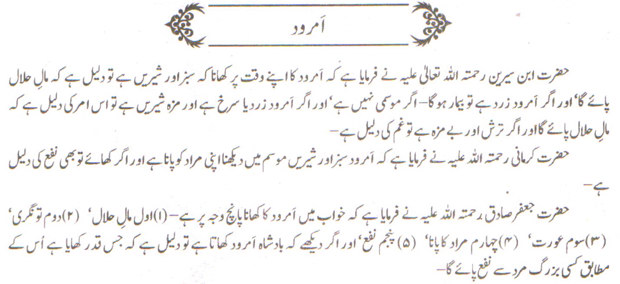 اَمرود
حضرت ابن سیرین رحمتہ اللہ تعالیٰ علیہ نے فرمایا ہے کہ اَمرود کا اپنے وقت پر کھانا کہ سبز اور شیریں ہے تو دلیل ہے کہ مالِ حلال
پائے گا' اور اگر اَمرود زرد ہے تو بیمار ہو گا۔ اگر موسمی نہیں ہے' اور اگر اَمرود زرد یا سرخ ہے اور مزہ شیریں ہے تو اس امر کی دلیل ہے کہ
مالِ حلال پائے گا اور اگر ترش اور بے مزہ ہے تو غم کی دلیل ہے۔
حضرت کرمانی رحمتہ اللہ علیہ نے فرمایا ہے کہ اَمرود سبز اور شیریں موسم میں دیکھنا اپنی مراد کو پانا ہے اور اگر کھائے تو بھی نفع کی دلیل
ہے۔
حضرت جعفر صادق رحمتہ اللہ علیہ نے فرمایا ہے کہ خواب میں اَمرود کا کھانا پانچ وجہ پر ہے۔ (۱) اول مالِ حلال' (۲) دوم تونگری'
(۳) سوم عورت' (۴) چہارم مراد کا پانا' (۵) پنجم نفع' اور اگر دیکھے کہ بادشاہ اَمرود کھاتا ہے تو دلیل ہے کہ جس قدر کھایا ہے اُس کے
مطابق کسی بزرگ مرد سے نفع پائے گا۔